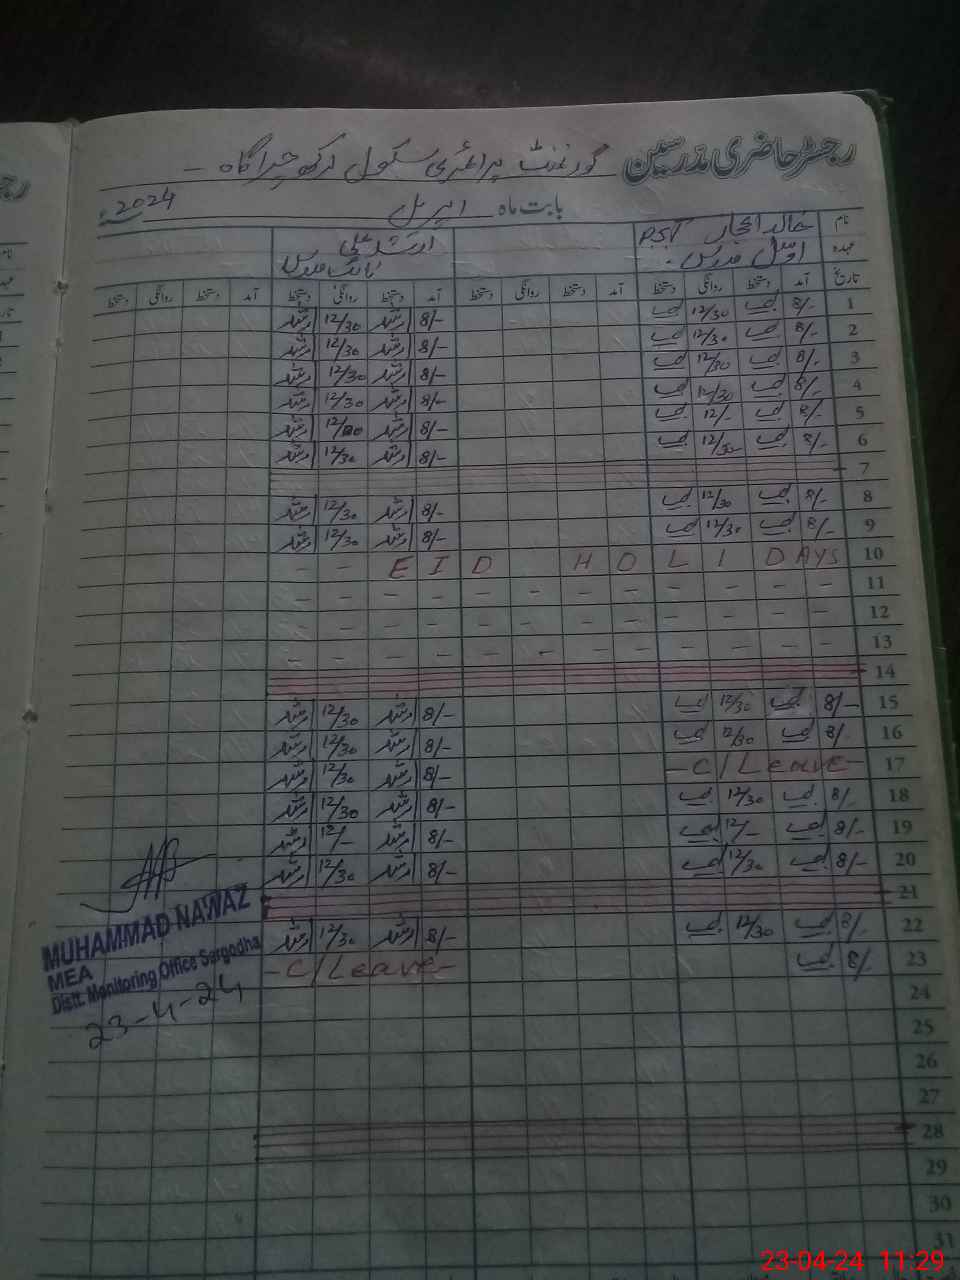 رجسٹر حاضری مدرسین گورنمنٹ پرائمری سکول رکھ چراگاہ
بابت ماہ اپریل 2024ء
نام خالد اعجاز PST ارشد علی
عہدہ اول مدرس نائب مدرس
تاریخ آمد دستخط روانگی دستخط آمد دستخط روانگی دستخط آمد دستخط روانگی دستخط آمد دستخط روانگی دستخط
1 8/- 12/30 8/- ارشد 12/30 ارشد
2 8/- 12/30 8/- ارشد 12/30 ارشد
3 8/- 12/30 8/- ارشد 12/30 ارشد
4 8/- 12/30 8/- ارشد 12/30 ارشد
5 8/- 12/- 8/- ارشد 12/00 ارشد
6 8/- 12/30 8/- ارشد 12/30 ارشد
7
8 8/- 12/30 8/- ارشد 12/30 ارشد
9 8/- 12/30 8/- ارشد 12/30 ارشد
10 - - EID HOLIDAYS
11 - - - - - - - - - - - -
12 - - - - - - - - - - - -
13 - - - - - - - - - - - -
14
15 8/- 12/30 8/- ارشد 12/30 ارشد
16 8/- 12/30 8/- ارشد 12/30 ارشد
17 -C/Leave- 8/- ارشد 12/30 ارشد
18 8/- 12/30 8/- ارشد 12/30 ارشد
19 8/- 12/- 8/- ارشد 12/- ارشد
20 8/- 12/30 8/- ارشد 12/30 ارشد
21
22 8/- 12/30 8/- ارشد 12/30 ارشد
23 8/- -C/Leave-
24
25
26
27
28
29
30
31
MUHAMMAD NAWAZ
MEA
Distt. Monitoring Office Sargodha
23-4-24
23-04-24 11:29